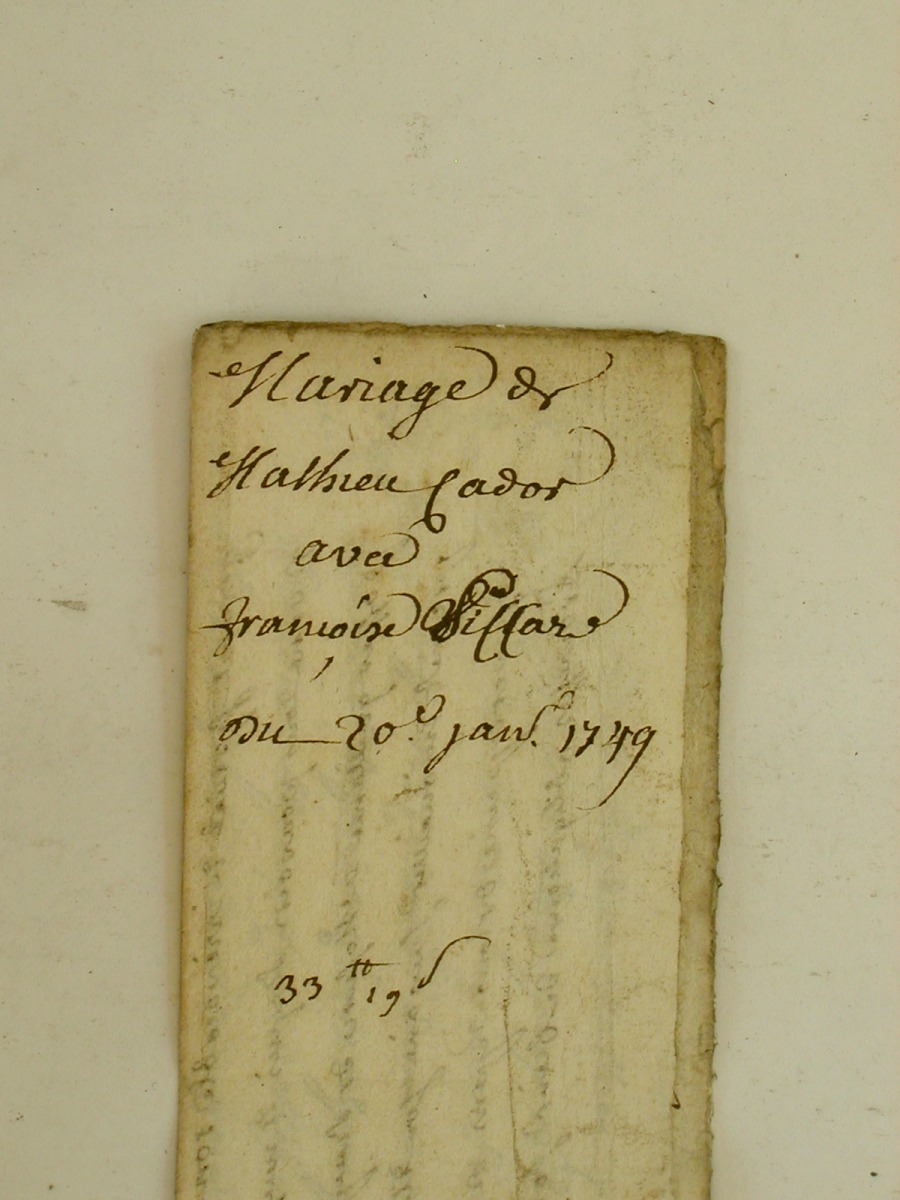 Mariage de
Mathieu Cador
avec
françoise Villard
du 20e janv. 1749
33 ₶ 19 s